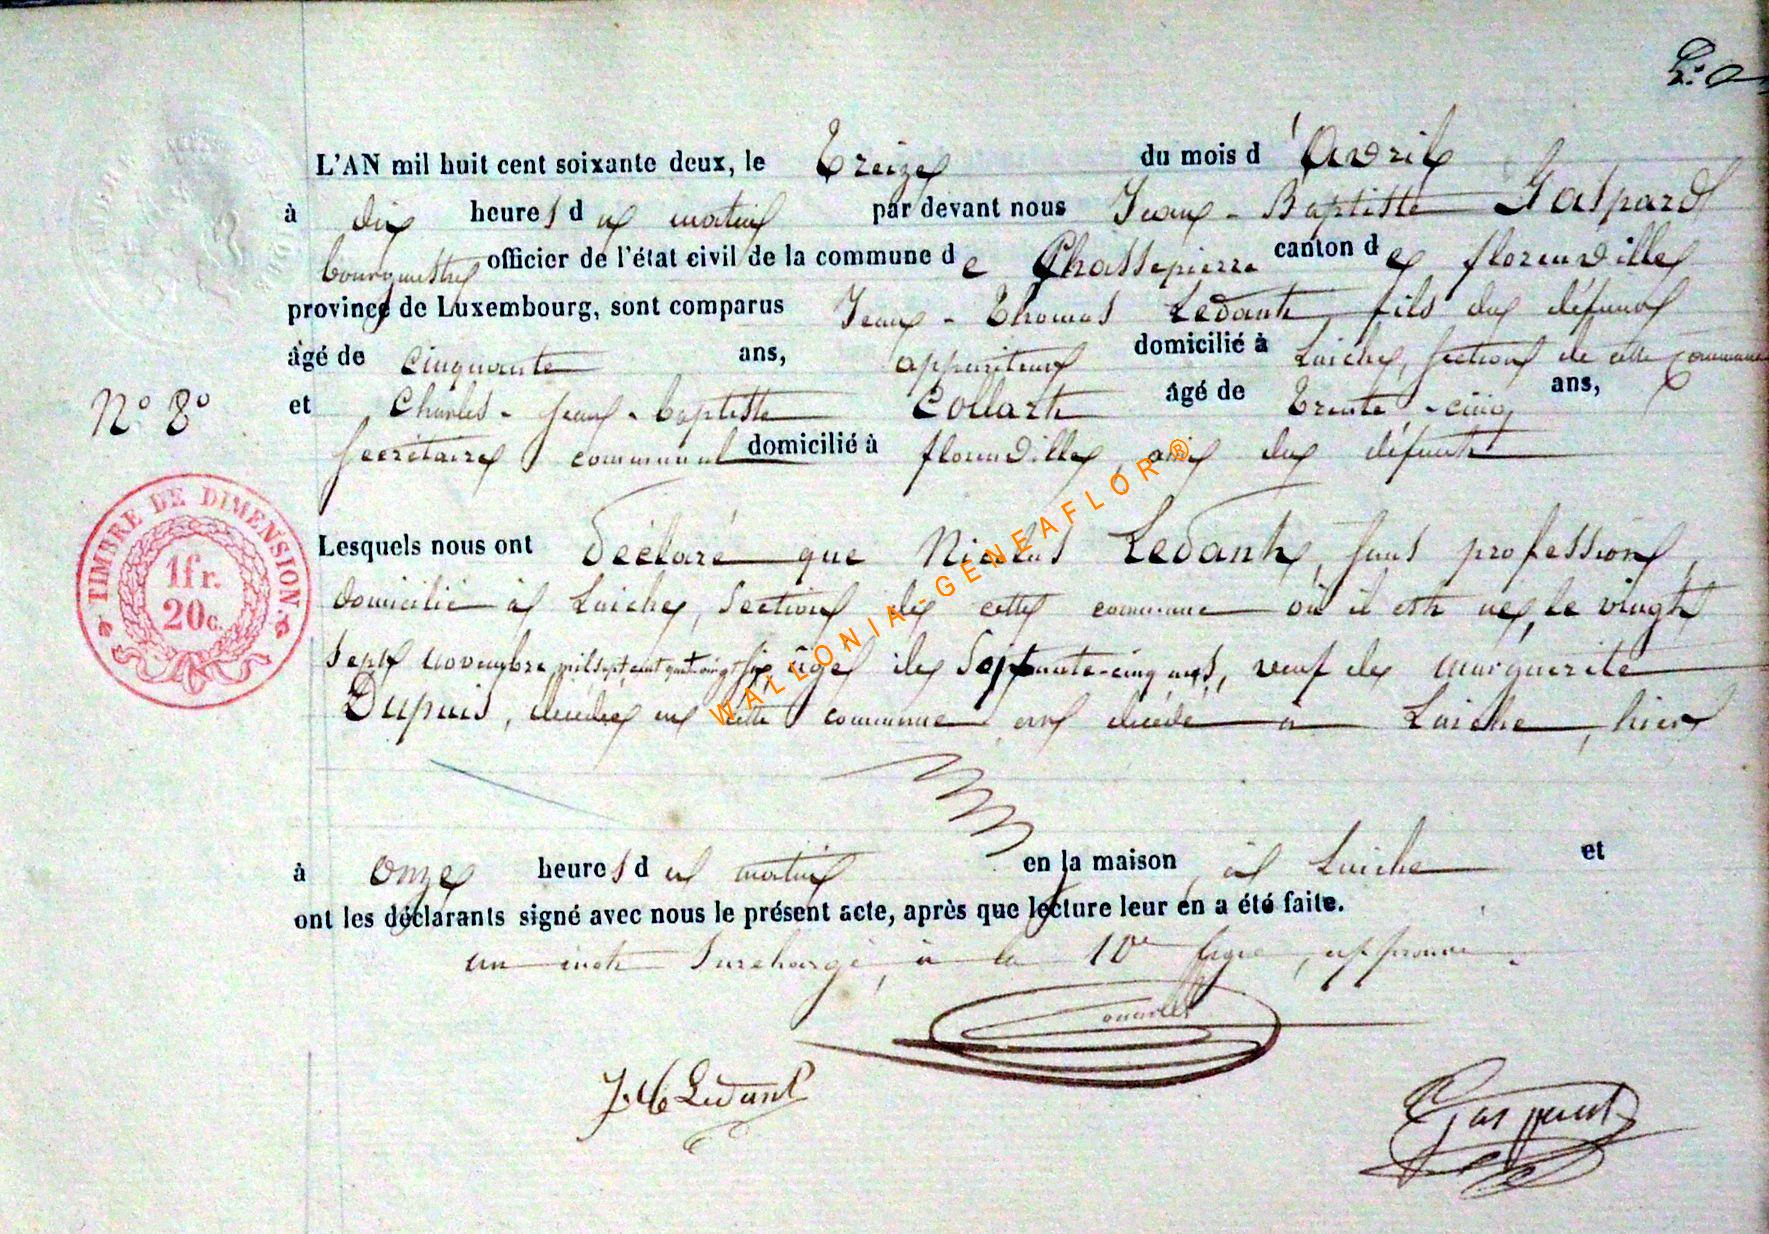 L'AN mil huit cent soixante deux, le Treize du mois d'Avril
à dix heures du matin par devant nous Jean-Baptiste Gaspard
bourgmestre officier de l'état civil de la commune de Chassepierre canton de florenville
province de Luxembourg, sont comparus Jean-Thomas Ledant, fils du défunt
âgé de cinquante ans, appariteur domicilié à Laiche, section de cette commune
N° 8°
et Charles-jean-baptiste Collart âgé de Trente-cinq ans,
secrétaire communal domicilié à florenville, ami du défunt
Lesquels nous ont déclaré que Nicolas Ledant, sans profession,
domicilié à Laiche, section de cette commune où il est né, le vingt
sept novembre mil sept cent quatrevingt six, âgé de Septante-cinq ans, veuf de Marguerite
Dupuis, décédée en cette commune est décédé à Laiche, hier
à onze heures du matin en la maison à Laiche et
ont les déclarants signé avec nous le présent acte, après que lecture leur en a été faite.
un mot surchargé, à la 10e ligne, approuvé.
J. T. Ledant
Gaspard
TIMBRE DE DIMENSION. G
1fr.
20c.
WALLONIA-GENEAFLOR®